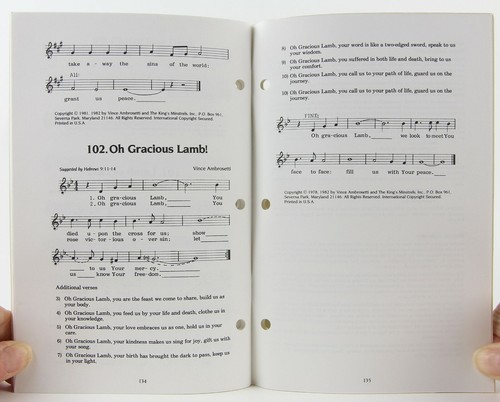 take a - way the sins of the world:
ALL:
grant us peace.
Copyright © 1981, 1982 by Vince Ambrosetti and The King's Minstrels, Inc. P.O. Box 961,
Severna Park, Maryland 21146. All Rights Reserved. International Copyright Secured.
Printed in U.S.A.
102. Oh Gracious Lamb!
Suggested by Hebrews 9:11-14 Vince Ambrosetti
1. Oh gra-cious Lamb, You
2. Oh gra-cious Lamb, You
died u - pon the cross for us; show
rose vic - tor - ious o - ver sin; let
to us Your mer - cy.
us know Your free-dom.
Additional verses
3) Oh Gracious Lamb, you are the feast we come to share, build us as
your body.
4) Oh Gracious Lamb, you feed us by your life and death, clothe us in
your knowledge.
5) Oh Gracious Lamb, your love embraces us as one, hold us in your
care.
6) Oh Gracious Lamb, your kindness makes us sing for joy, gift us with
your song.
7) Oh Gracious Lamb, your birth has brought the dark to pass, keep us
in your light.
134
8) Oh Gracious Lamb, your word is like a two-edged sword, speak to us
your wisdom.
9) Oh Gracious Lamb, you suffered in both life and death, bring to us
your comfort.
10) Oh Gracious Lamb, you call us to your path of life, guard us on the
journey.
10) Oh Gracious Lamb, you call us to your path of life, guard us on the
journey.
FINE:
Oh gra-cious Lamb, we look to meet You
face to face: fill us with Your peace.
Copyright © 1978, 1982 by Vince Ambrosetti and The King's Minstrels, Inc. P.O. Box 961,
Severna Park, Maryland 21146. All Rights Reserved. International Copyright Secured.
Printed in U.S.A.
135